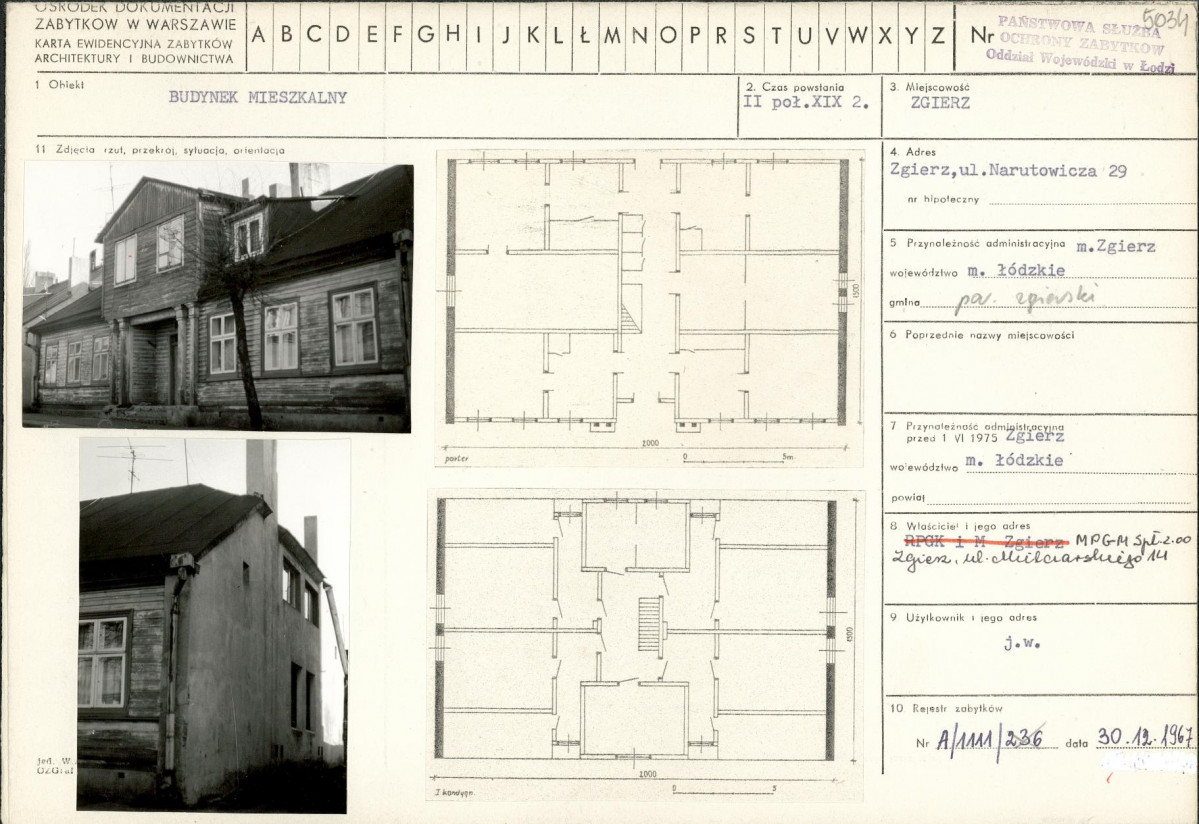 OŚRODEK DOKUMENTACJI
ZABYTKÓW W WARSZAWIE
KARTA EWIDENCYJNA ZABYTKÓW
ARCHITEKTURY I BUDOWNICTWA
A B C D E F G H I J K L Ł M N O P R S T U V W X Y Z
Nr
5034
PAŃSTWOWA SŁUŻBA
OCHRONY ZABYTKÓW
Oddział Wojewódzki w Łodzi
1 Obiekt
BUDYNEK MIESZKALNY
2. Czas powstania
II poł.XIX 2.
3. Miejscowość
ZGIERZ
11 Zdjęcia rzut, przekrój, sytuacja, orientacja
4. Adres
Zgierz,ul.Narutowicza 29
nr hipoteczny
5 Przynależność administracyjna m.Zgierz
województwo m. łódzkie
gmina pow. zgierski
6 Poprzednie nazwy miejscowości
7 Przynależność administracyjna
przed 1 VI 1975 Zgierz
województwo m. łódzkie
powiat
8 Właściciel i jego adres
RPGK i M Zgierz MPGM Sp.z.oo
Zgierz, ul. Mielczarskiego 14
9 Użytkownik i jego adres
j.w.
10 Rejestr zabytków
Nr A/1111/236 data 30.12.1967
1300
2000
parter
0 5m
1300
2000
I kondygn.
0 5
jed. W.
OZGraf